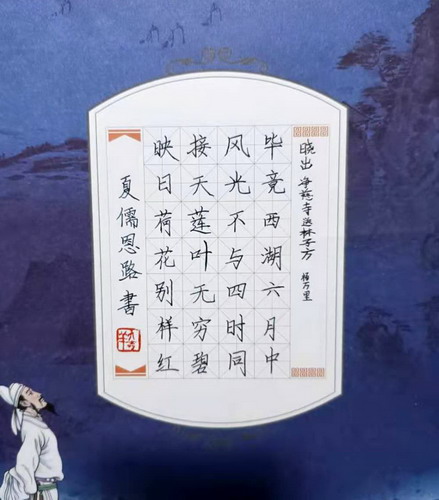 晓出净慈寺送林子方
杨万里
毕竟西湖六月中
风光不与四时同
接天莲叶无穷碧
映日荷花别样红
夏儒恩路書